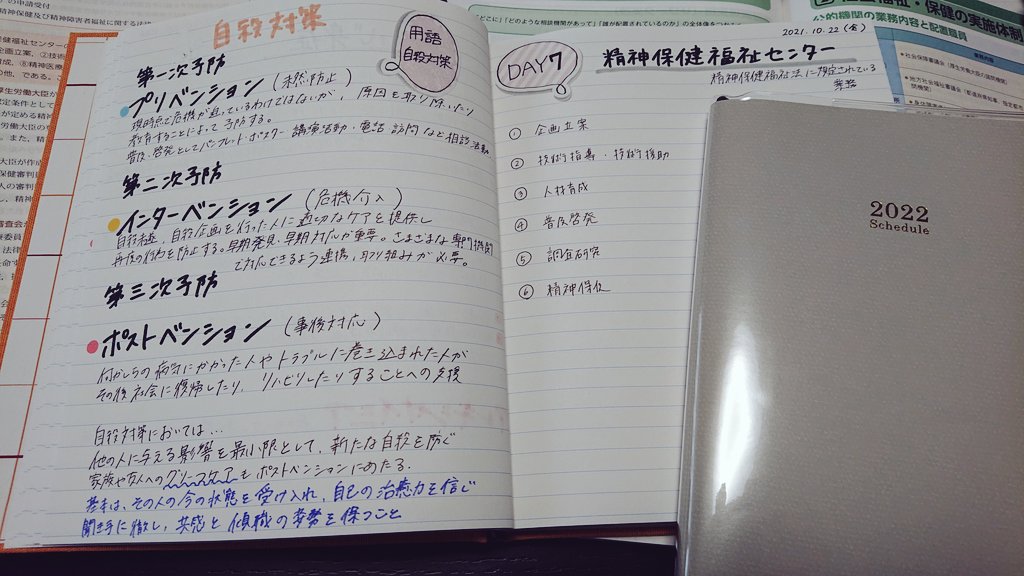 自殺対策
用語
自殺対策
第一次予防
プリベンション (未然防止)
現時点で危機が迫っているわけではないが、原因を取り除いたり
教育することによって予防する。
普及・啓発としてパンフレット・ポスター・講演活動・電話・訪問など相談活動
第二次予防
インターベンション (危機介入)
自殺未遂、自殺企図を行った人に適切なケアを提供し
再度の行動を防止する。早期発見・早期対応が重要。さまざまな専門機関
で対応できるよう連携、取り組みが必要。
第三次予防
ポストベンション (事後対応)
何かしらの病気にかかった人やトラブルに巻き込まれた人が
その後社会に復帰したり、リハビリしたりすることへの支援
自殺対策においては…
他の人に与える影響を最小限として、新たな自殺を防ぐ
家族や友人へのグリーフケアもポストベンションにあたる。
基本は、その人の今の状態を受け入れ、自己の治癒力を信じ
聞き手に徹し、共感と傾聴の姿勢を保つこと
2021.10.22 (金)
DAY7
精神保健福祉センター
精神保健福祉法に規定されている
業務
① 企画立案
② 技術指導・技術援助
③ 人材育成
④ 普及啓発
⑤ 調査研究
⑥ 精神保健
2022
Schedule
「どこに」「どのような相談機関があって」「誰が配置されているのか」の全体像を
社会福祉・保健の実施体制
公的機関の業務内容と配置職員